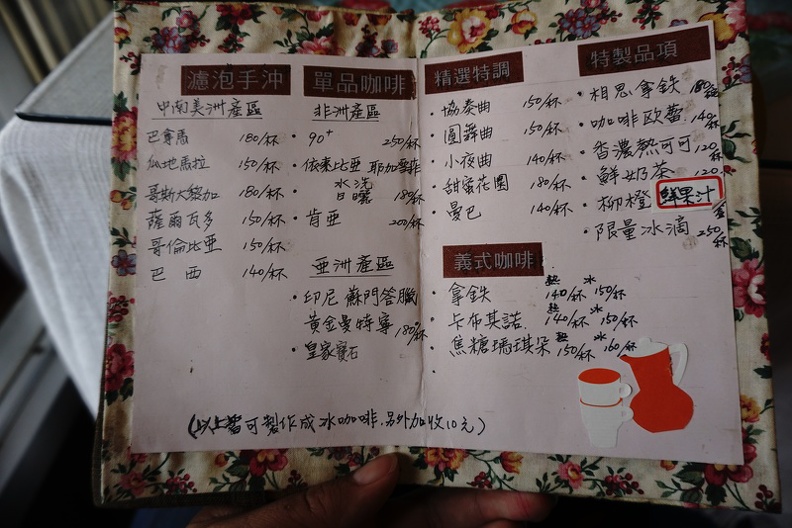 濾泡手沖
中南美洲產區
巴拿馬 180/杯
瓜地馬拉 150/杯
哥斯大黎加 180/杯
薩爾瓦多 150/杯
哥倫比亞 150/杯
巴西 140/杯
單品咖啡
非洲產區
• 90+ 250/杯
• 依索比亞 耶加雪菲
水洗
日曬 180/杯
• 肯亞 200/杯
亞洲產區
• 印尼 蘇門答臘
黃金曼特寧 180/杯
• 皇家寶石
(以上皆可製作成冰咖啡.另外加收10元)
精選特調
• 協奏曲 150/杯
• 圓舞曲 150/杯
• 小夜曲 140/杯
• 甜蜜花園 180/杯
• 曼巴 140/杯
義式咖啡
熱 冰
• 拿鐵 140/杯 150/杯
熱 冰
• 卡布其諾 140/杯 150/杯
熱 冰
• 焦糖瑪琪朵 150/杯 160/杯
特製品項
• 相思拿鐵 180/壺
• 咖啡歐蕾 140/杯
• 香濃熱可可 120/杯
• 鮮奶茶 120
• 柳橙 鮮果汁
• 限量冰滴 250/杯